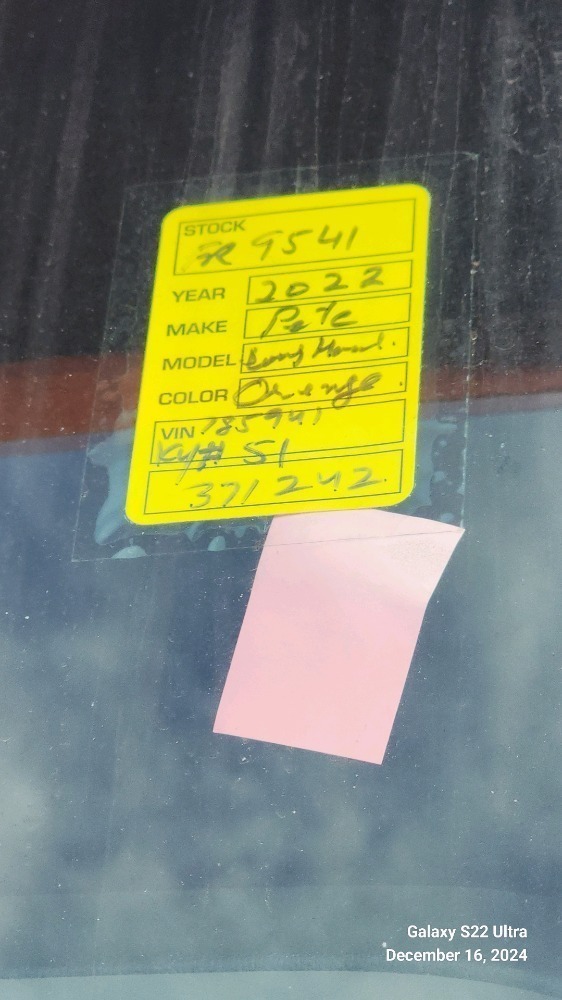 STOCK
9541
YEAR 2022
MAKE Pete
MODEL Long
COLOR Orange.
VIN 785941
Ky# 51
371242
Galaxy S22 Ultra
December 16, 2024